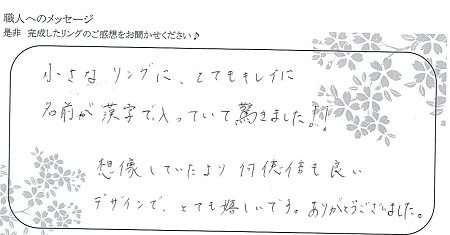 職人へのメッセージ
是非 完成したリングのご感想をお聞かせください♪
小さなリングに、とてもキレイに
名前が漢字で入っていて驚きました!!
想像していたより何億倍も良い
デザインで、とても嬉しいです。ありがとうございました。